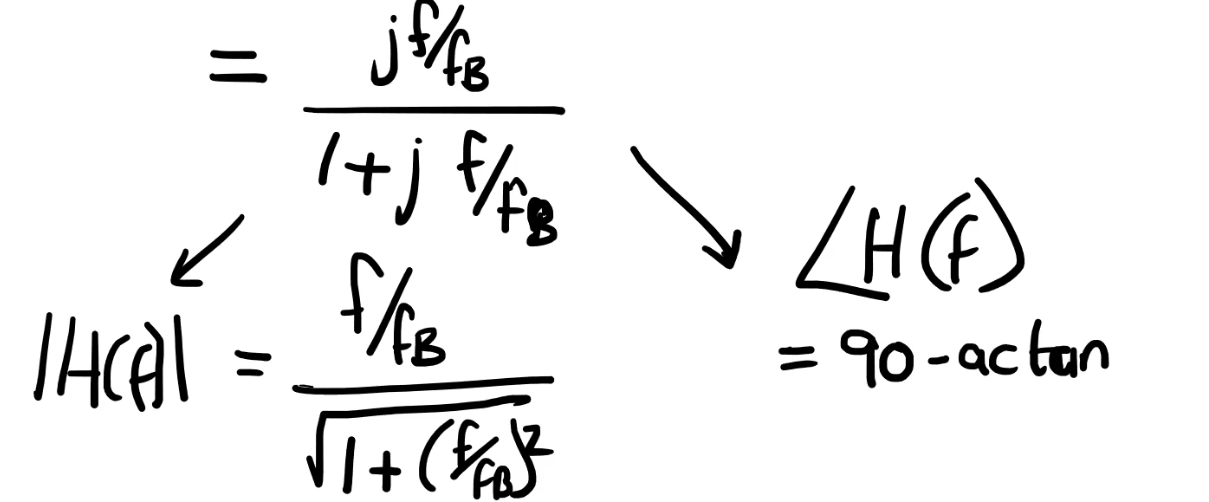 = j f/fB
1 + j f/fB
∠H(f)
|H(f)| = f/fB
√1 + (f/fB)²
= 90 - actan